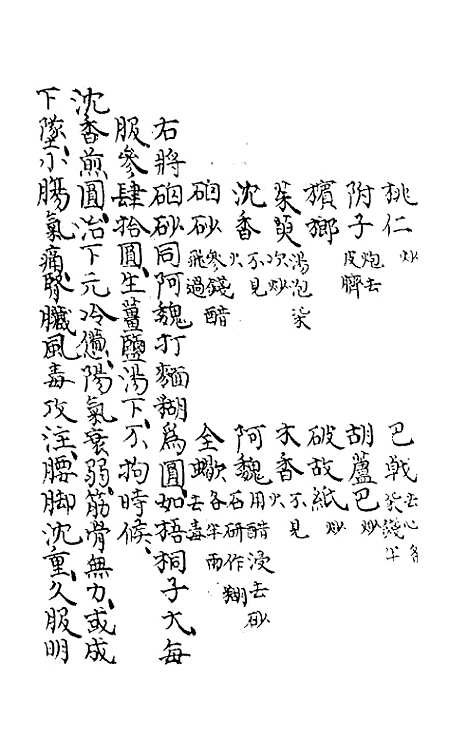 桃仁炒 巴戟去心各柒錢半
附子炮去皮臍 胡蘆巴炒
檳榔 破故紙炒
茱萸湯泡柒次炒 木香不見火
沈香不見火 阿魏用醋浸去砂石研作糊
硇砂參錢醋飛過 全蠍去毒各半兩
右將硇砂同阿魏打麵糊爲圓如梧桐子大每
服參肆拾圓生薑鹽湯下不拘時候
沈香煎圓治下元冷憊陽氣衰弱筋骨無力或成
下墜小腸氣痛腎臟風毒攻注腰脚沈重久服明